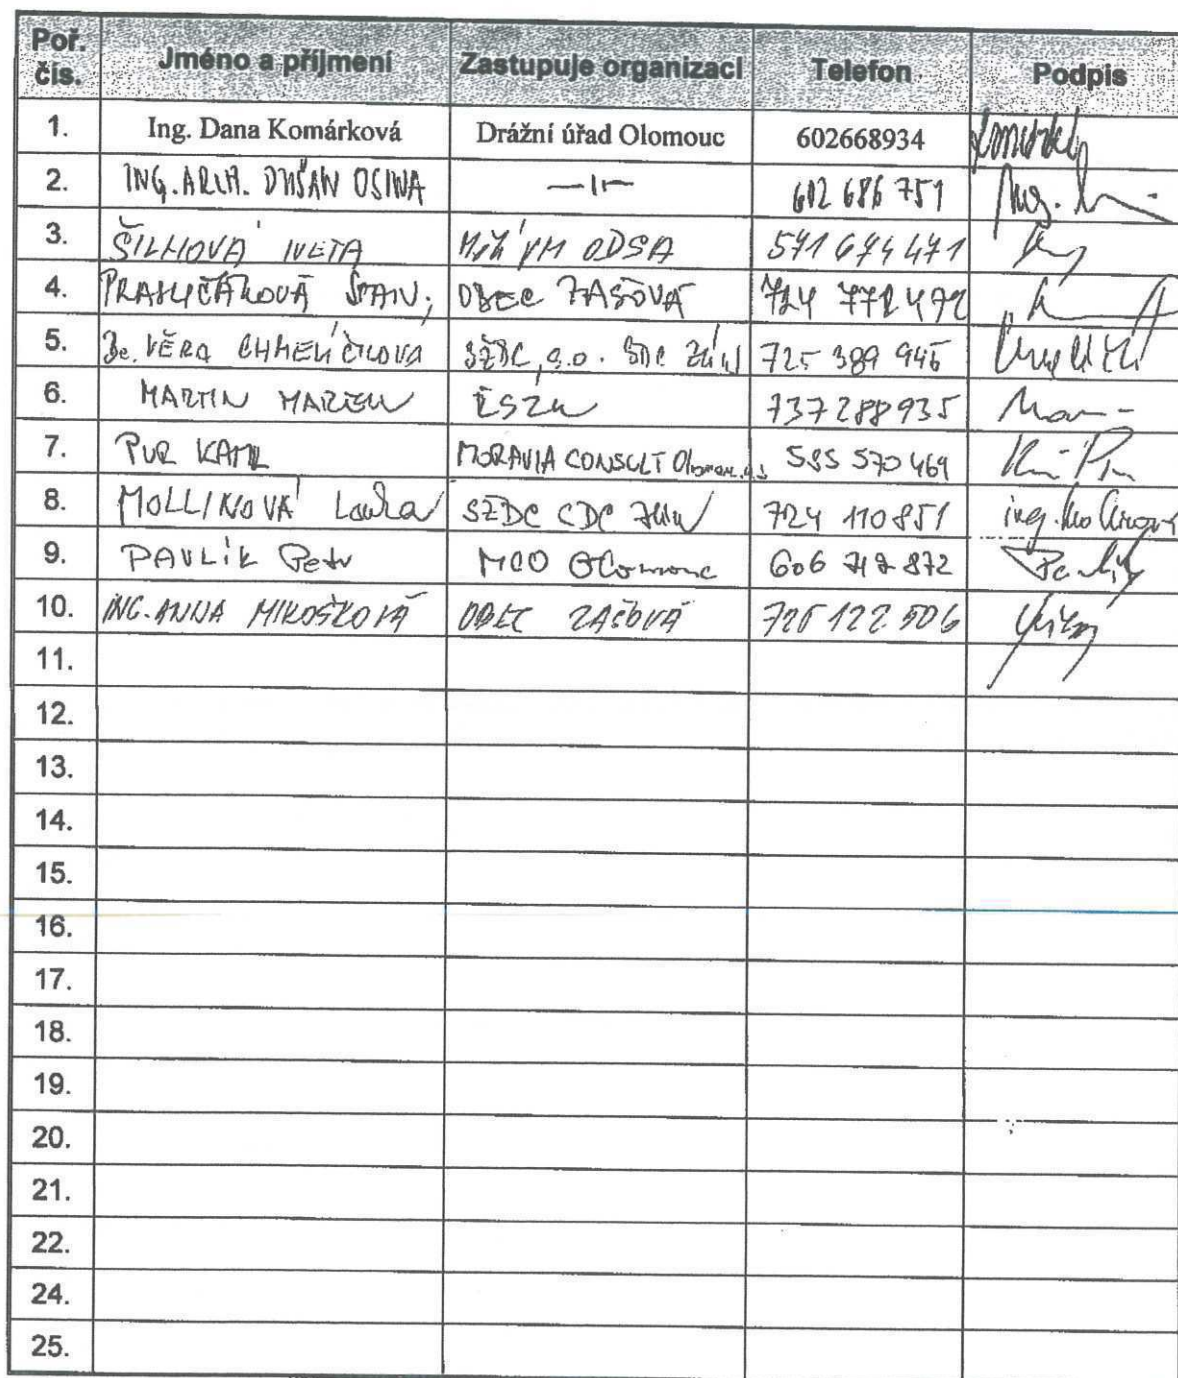 Poř. čís. Jméno a příjmení Zastupuje organizaci Telefon Podpis
1. Ing. Dana Komárková Drážní úřad Olomouc 602668934
2. ING. ARCH. DUŠAN OSINA —||— 602 686 751 Ing.
3. ŠILHOVÁ IVETA MěÚ VM ODSA 571 674 471
4. OBEC ZAŠOVÁ 724 772 472
5. Bc. VĚRA CHMELÍČKOVÁ SŽDC, s.o. 725 389 945
6. MARTIN 737 288 935
7. PUR KAMIL MORAVIA CONSULT Olomouc a.s. 585 570 469
8. MOLLINOVÁ Lenka SŽDC CDC Zlín 724 110 851 ing. Mollinová
9. PAVLÍK Petr MCO Olomouc 606 717 872 Pavlík
10. ING. ANNA MIKOŠKOVÁ OBEC ZAŠOVÁ
11.
12.
13.
14.
15.
16.
17.
18.
19.
20.
21.
22.
24.
25.